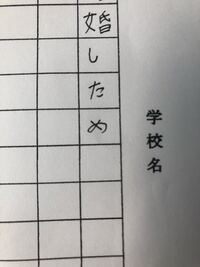 学校名
婚しため